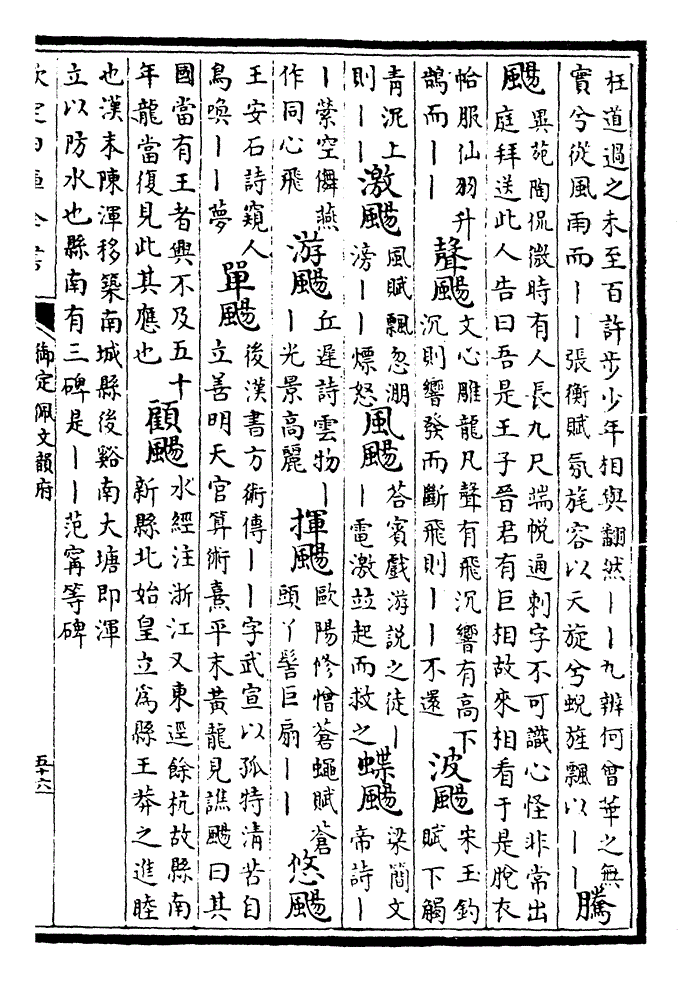 枉道過之未至百許步少年相與翻然丨丨九辨何曾華之無
實兮從風雨而丨丨張衡賦氛旄容以天旋兮蜺旌飄以丨丨
騰颺
異苑陶侃微時有人長九尺端帨通刺字不可識心怪非常出
庭拜送此人告曰吾是王子晉君有巨相故來相看于是脫衣
帢服仙羽升
鵲而丨丨
聲颺
文心雕龍凡聲有飛沉響有高下
沉則響發而斷飛則丨丨不還
波颺
宋玉釣
賦下觸
青泥上
則丨丨
激颺
風賦飄忽淜
滂丨丨熛怒
風颺
荅賓戲游說之徒丨
丨電激竝起而救之
蝶颺
梁簡文
帝詩丨
丨縈空儛燕
作同心飛
游颺
丘遲詩雲物丨
丨光景高麗
揮颺
歐陽修憎蒼蠅賦蒼
頭丫髻巨扇丨丨
悠颺
王安石詩窺人
鳥喚丨丨夢
單颺
後漢書方術傳丨丨字武宣以孤特清苦自
立善明天官算術熹平末黃龍見譙颺曰其
國當有王者興不及五十
年龍當復見此其應也
顧颺
水經注浙江又東逕餘杭故縣南
新縣北始皇立為縣王莽之進睦
也漢末陳渾移築南城縣後谿南大塘即渾
立以防水也縣南有三碑是丨丨范寗等碑
欽定四庫全書
御定佩文韻府
五十六